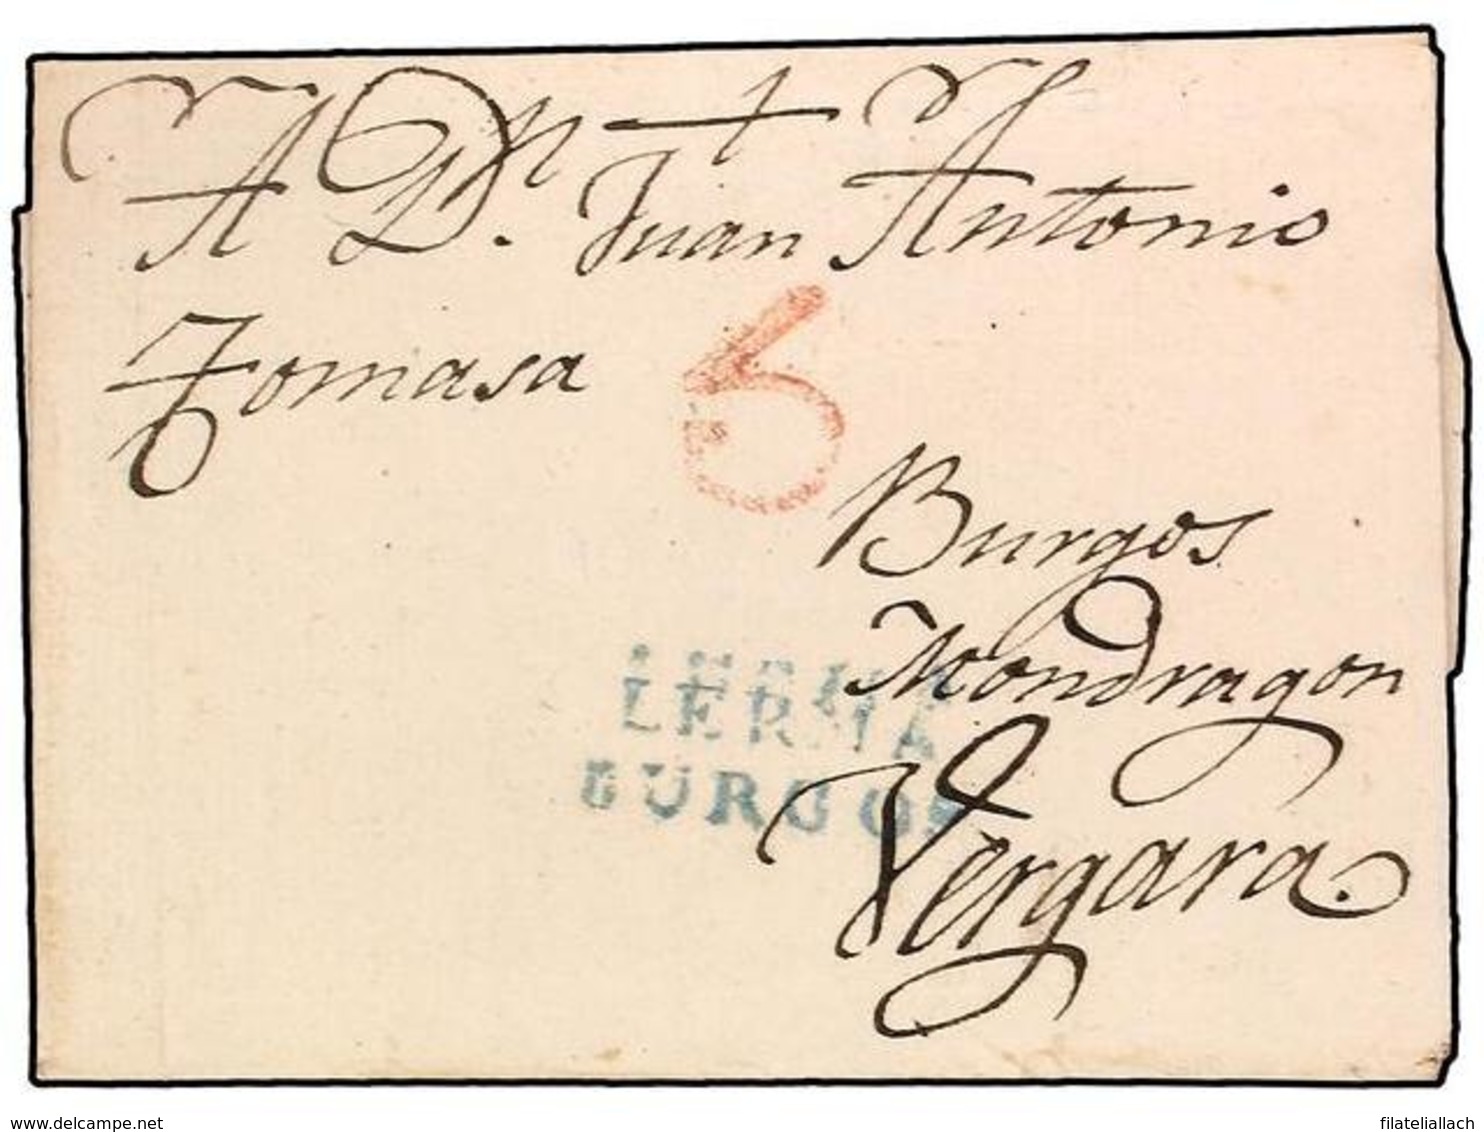 A Dn. Juan Antonio
Tomasa
6
Burgos
Mondragon
Vergara.
LERMA
LERMA
BURGOS
delcampe.net
filateliallach